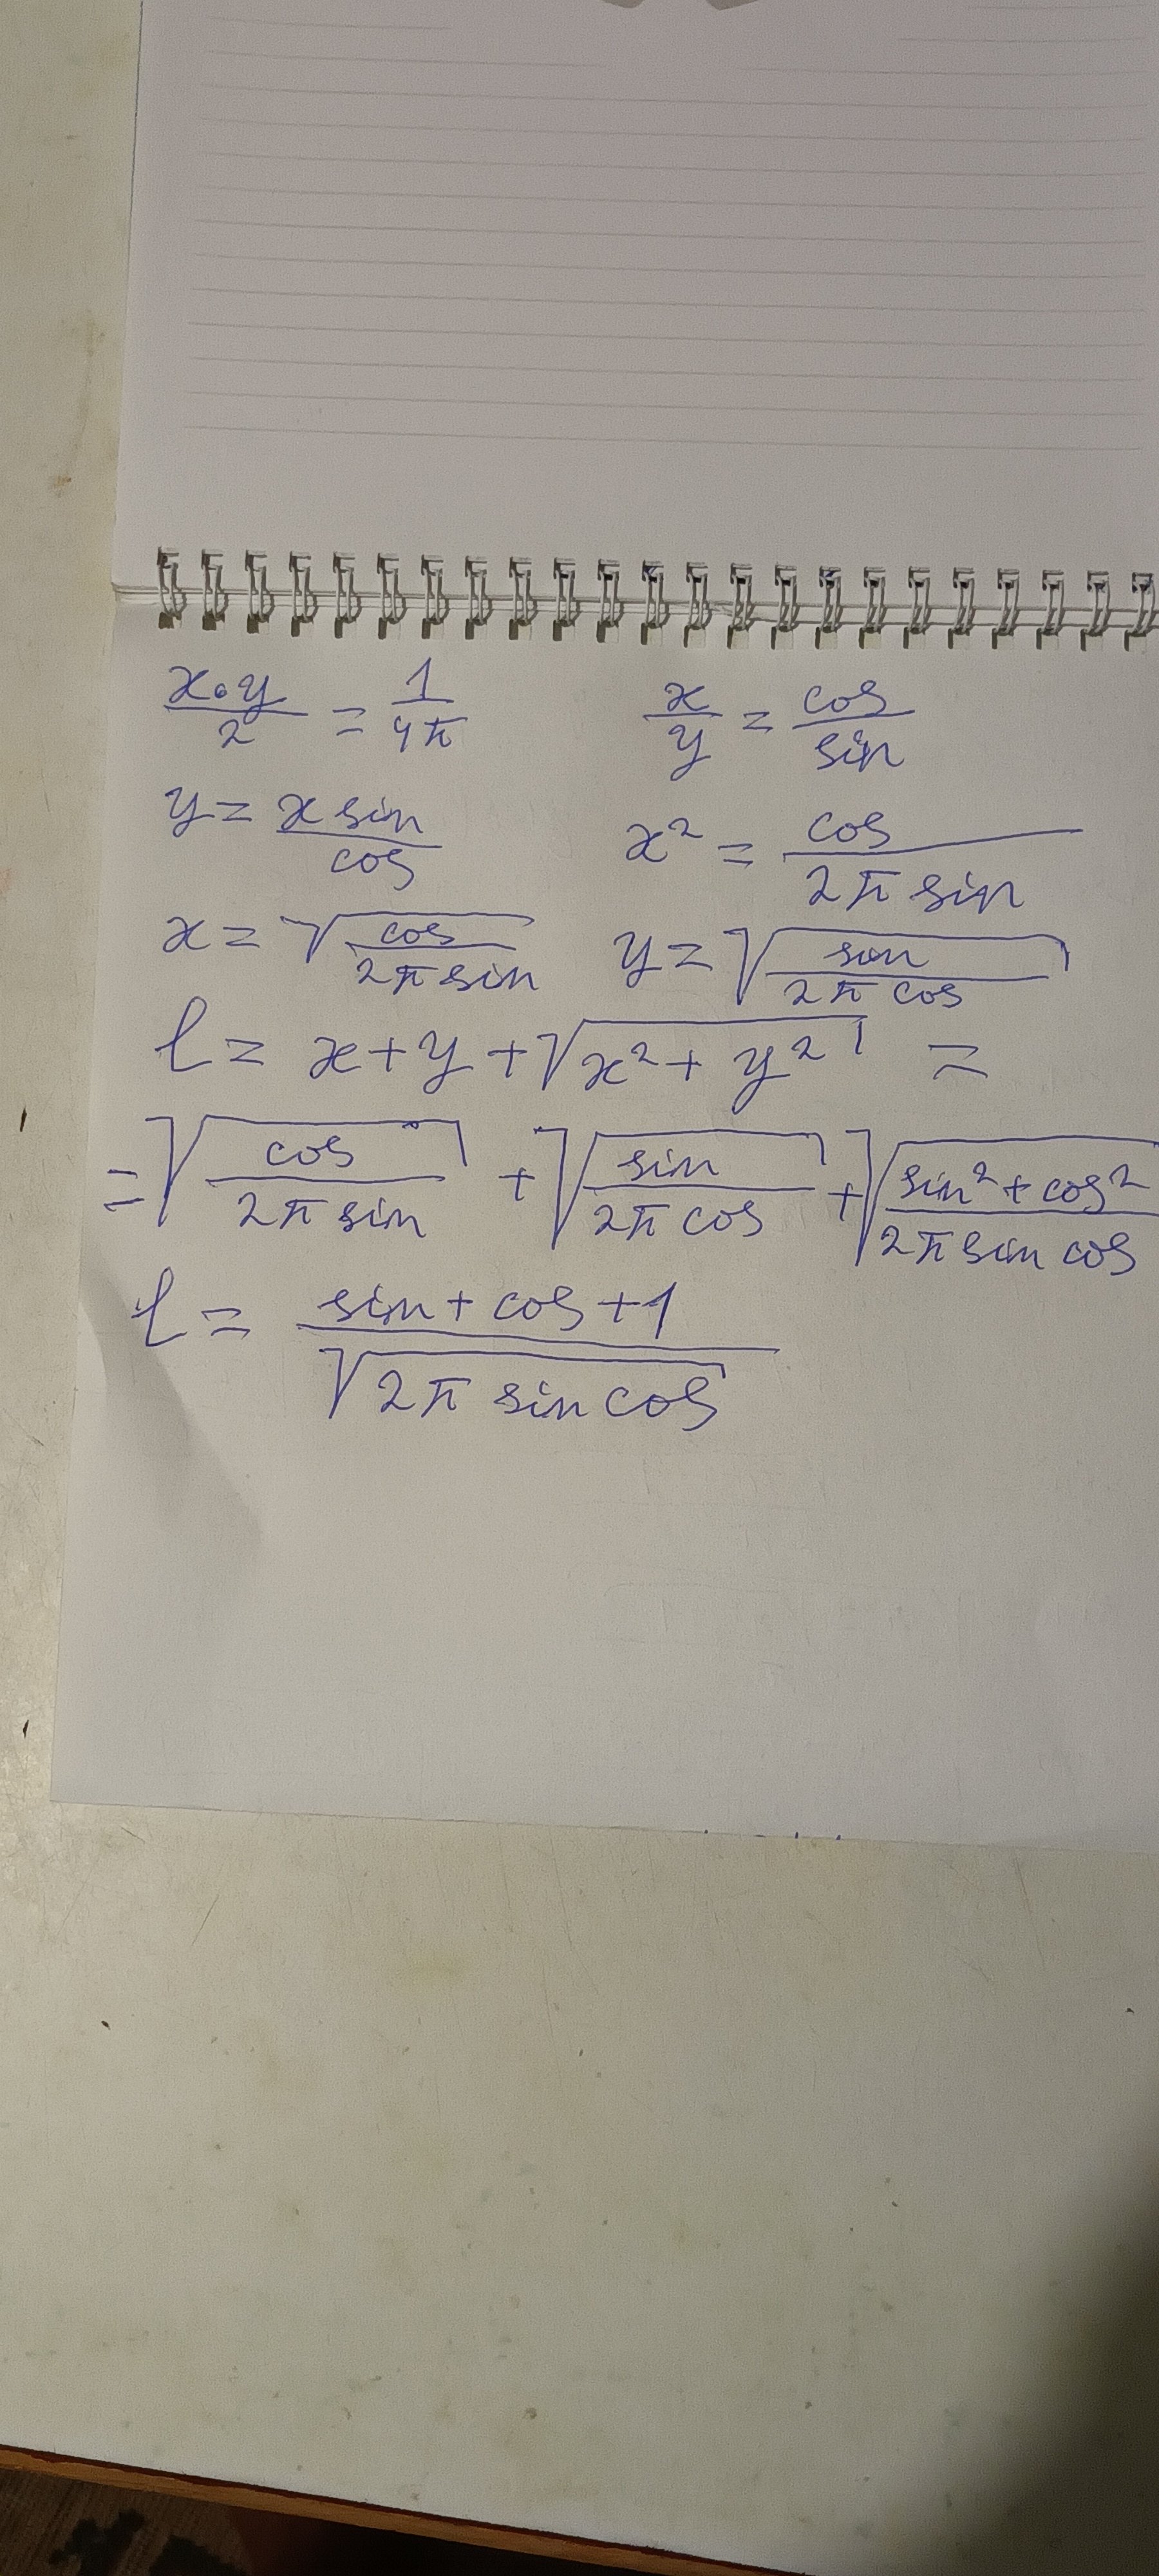 x·y/2 = 1/4π    x/y = cos/sin
y = x sin/cos    x² = cos/2π sin
x = √(cos/2π sin)    y = √(sin/2π cos)
l = x + y + √(x² + y²) =
= √(cos/2π sin) + √(sin/2π cos) + √(sin² + cos²/2π sin cos)
l = sin + cos + 1/√(2π sin cos)